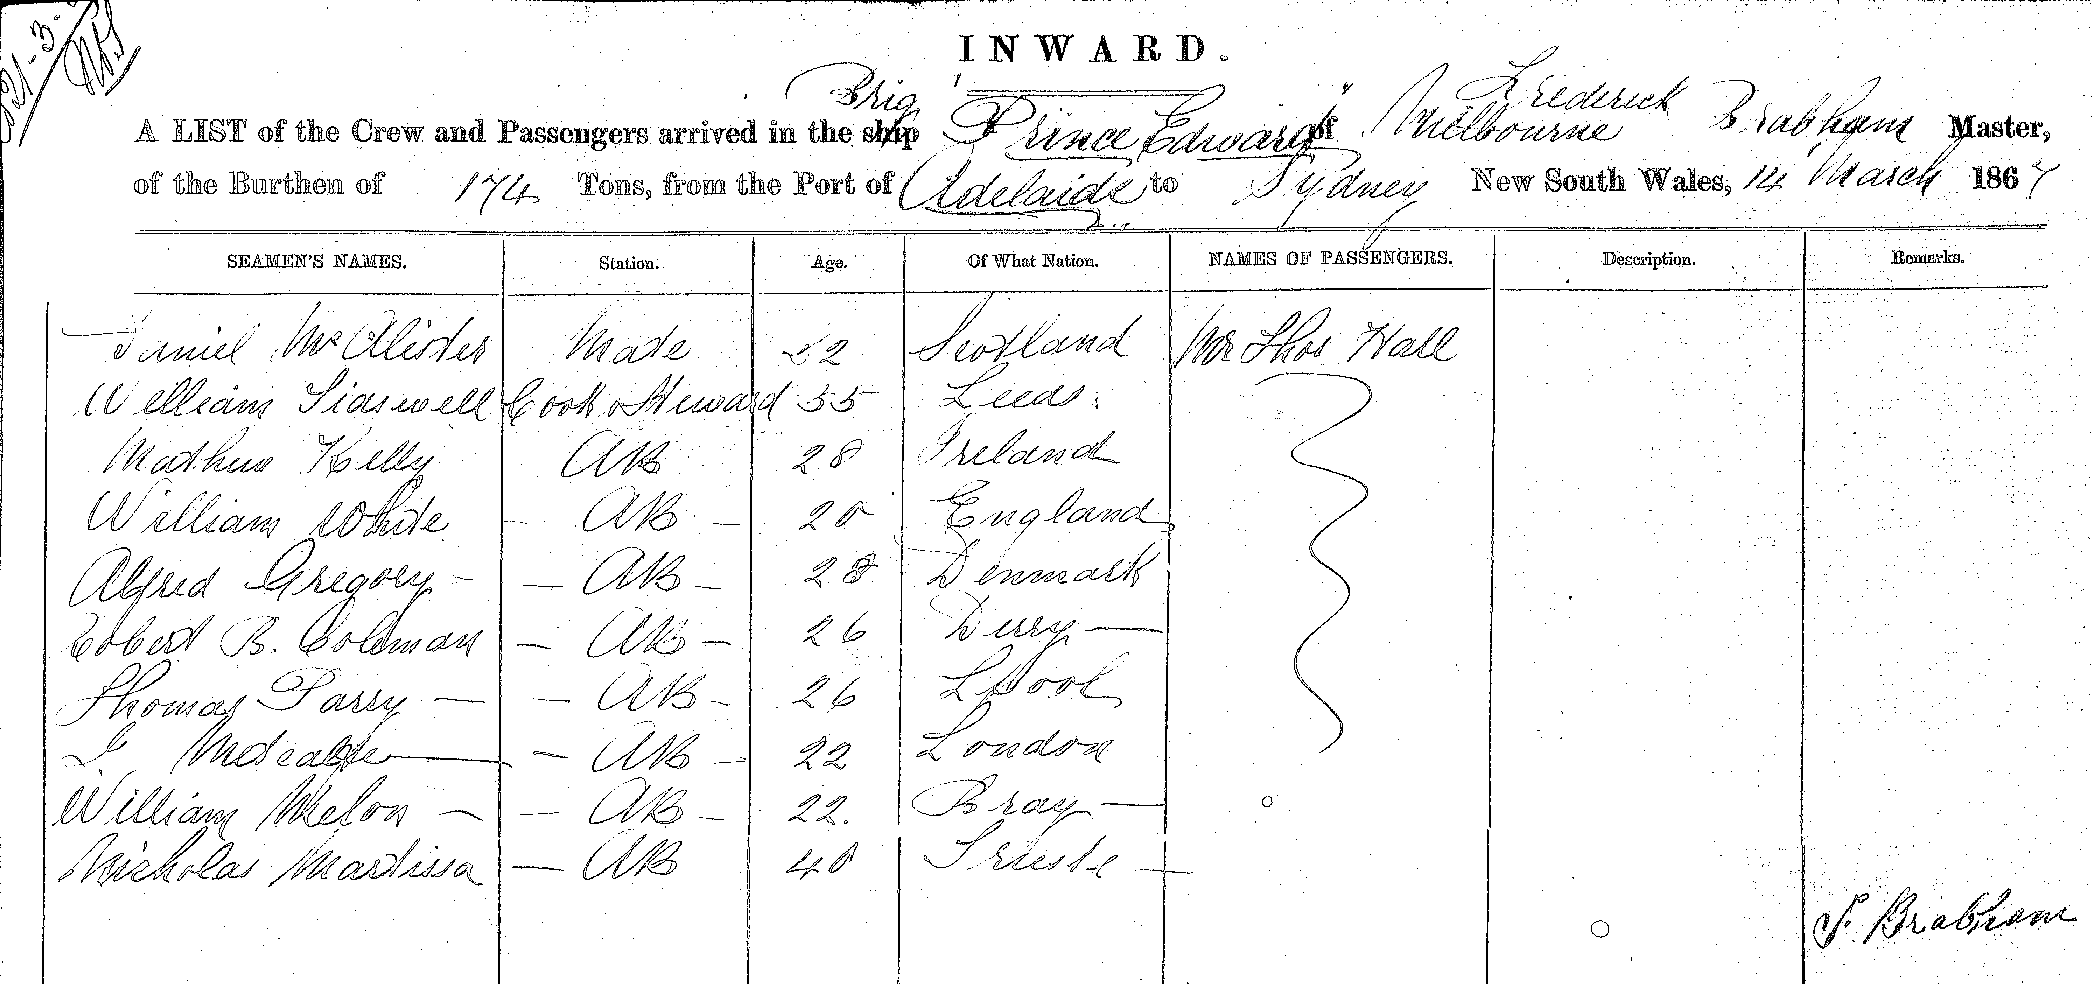 21-3-
INWARD.
Brig Frederick
A LIST of the Crew and Passengers arrived in the ship "Prince Edward" of Melbourne Brabham Master,
of the Burthen of 174 Tons, from the Port of Adelaide to Sydney New South Wales, 14 March 1867
SEAMEN'S NAMES. Station. Age. Of What Nation. NAMES OF PASSENGERS. Description. Remarks.
Daniel McAlister Mate 22 Scotland Mr Thos Hall
William Cook & Steward 55 Leeds
Kelly AB 28 Ireland
William White - AB - 20 England
Alfred Gregory - - AB - 28 Denmark
Robert B. Coleman - AB - 26 Derry -
Thomas Parry - - AB - 26 LPool
Metcalfe - - AB - 22 London
William Melon - - AB - 22. Bray -
Nicholas Martissa - AB 40 Trieste -
F. Brabham